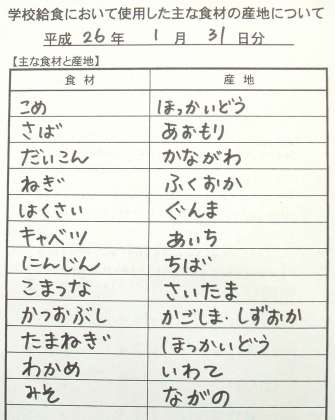 学校給食において使用した主な食材の産地について
平成 26 年 1 月 31 日分
【主な食材と産地】
食材 産地
こめ ほっかいどう
さば あおもり
だいこん かながわ
ねぎ ふくおか
はくさい ぐんま
キャベツ あいち
にんじん ちば
こまつな さいたま
かつおぶし かごしま・しずおか
たまねぎ ほっかいどう
わかめ いわて
みそ ながの